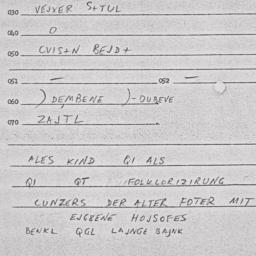 030 VEJXER S+TUL
040 O
050 CVIS+N BEJD+
051 — 052 —
060 )DEMBENE )-OUBEVE
070 ZAJTL
ALES KIND QI ALS
QI QT FOLKLORIZIRUNG
CUNZERS DER ALTER FOTER MIT
EJGKENE HOJSOFES
BENKL QGL LAJNGE BAJNK